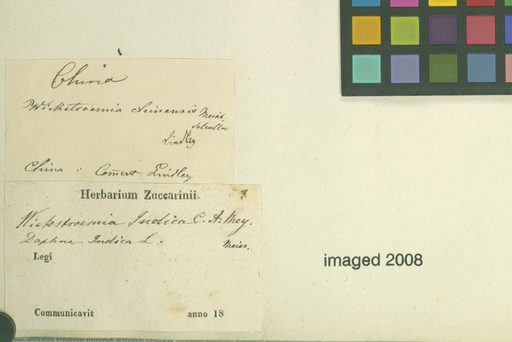 China
Wickstroemia chinensis Meisn.
Lindley
China : Comert. Lindley
Herbarium Zuccarinii.
Wickstroemia Indica C. A. Mey.
Daphne Indica L. Meisn.
Legi
imaged 2008
Communicavit anno 18